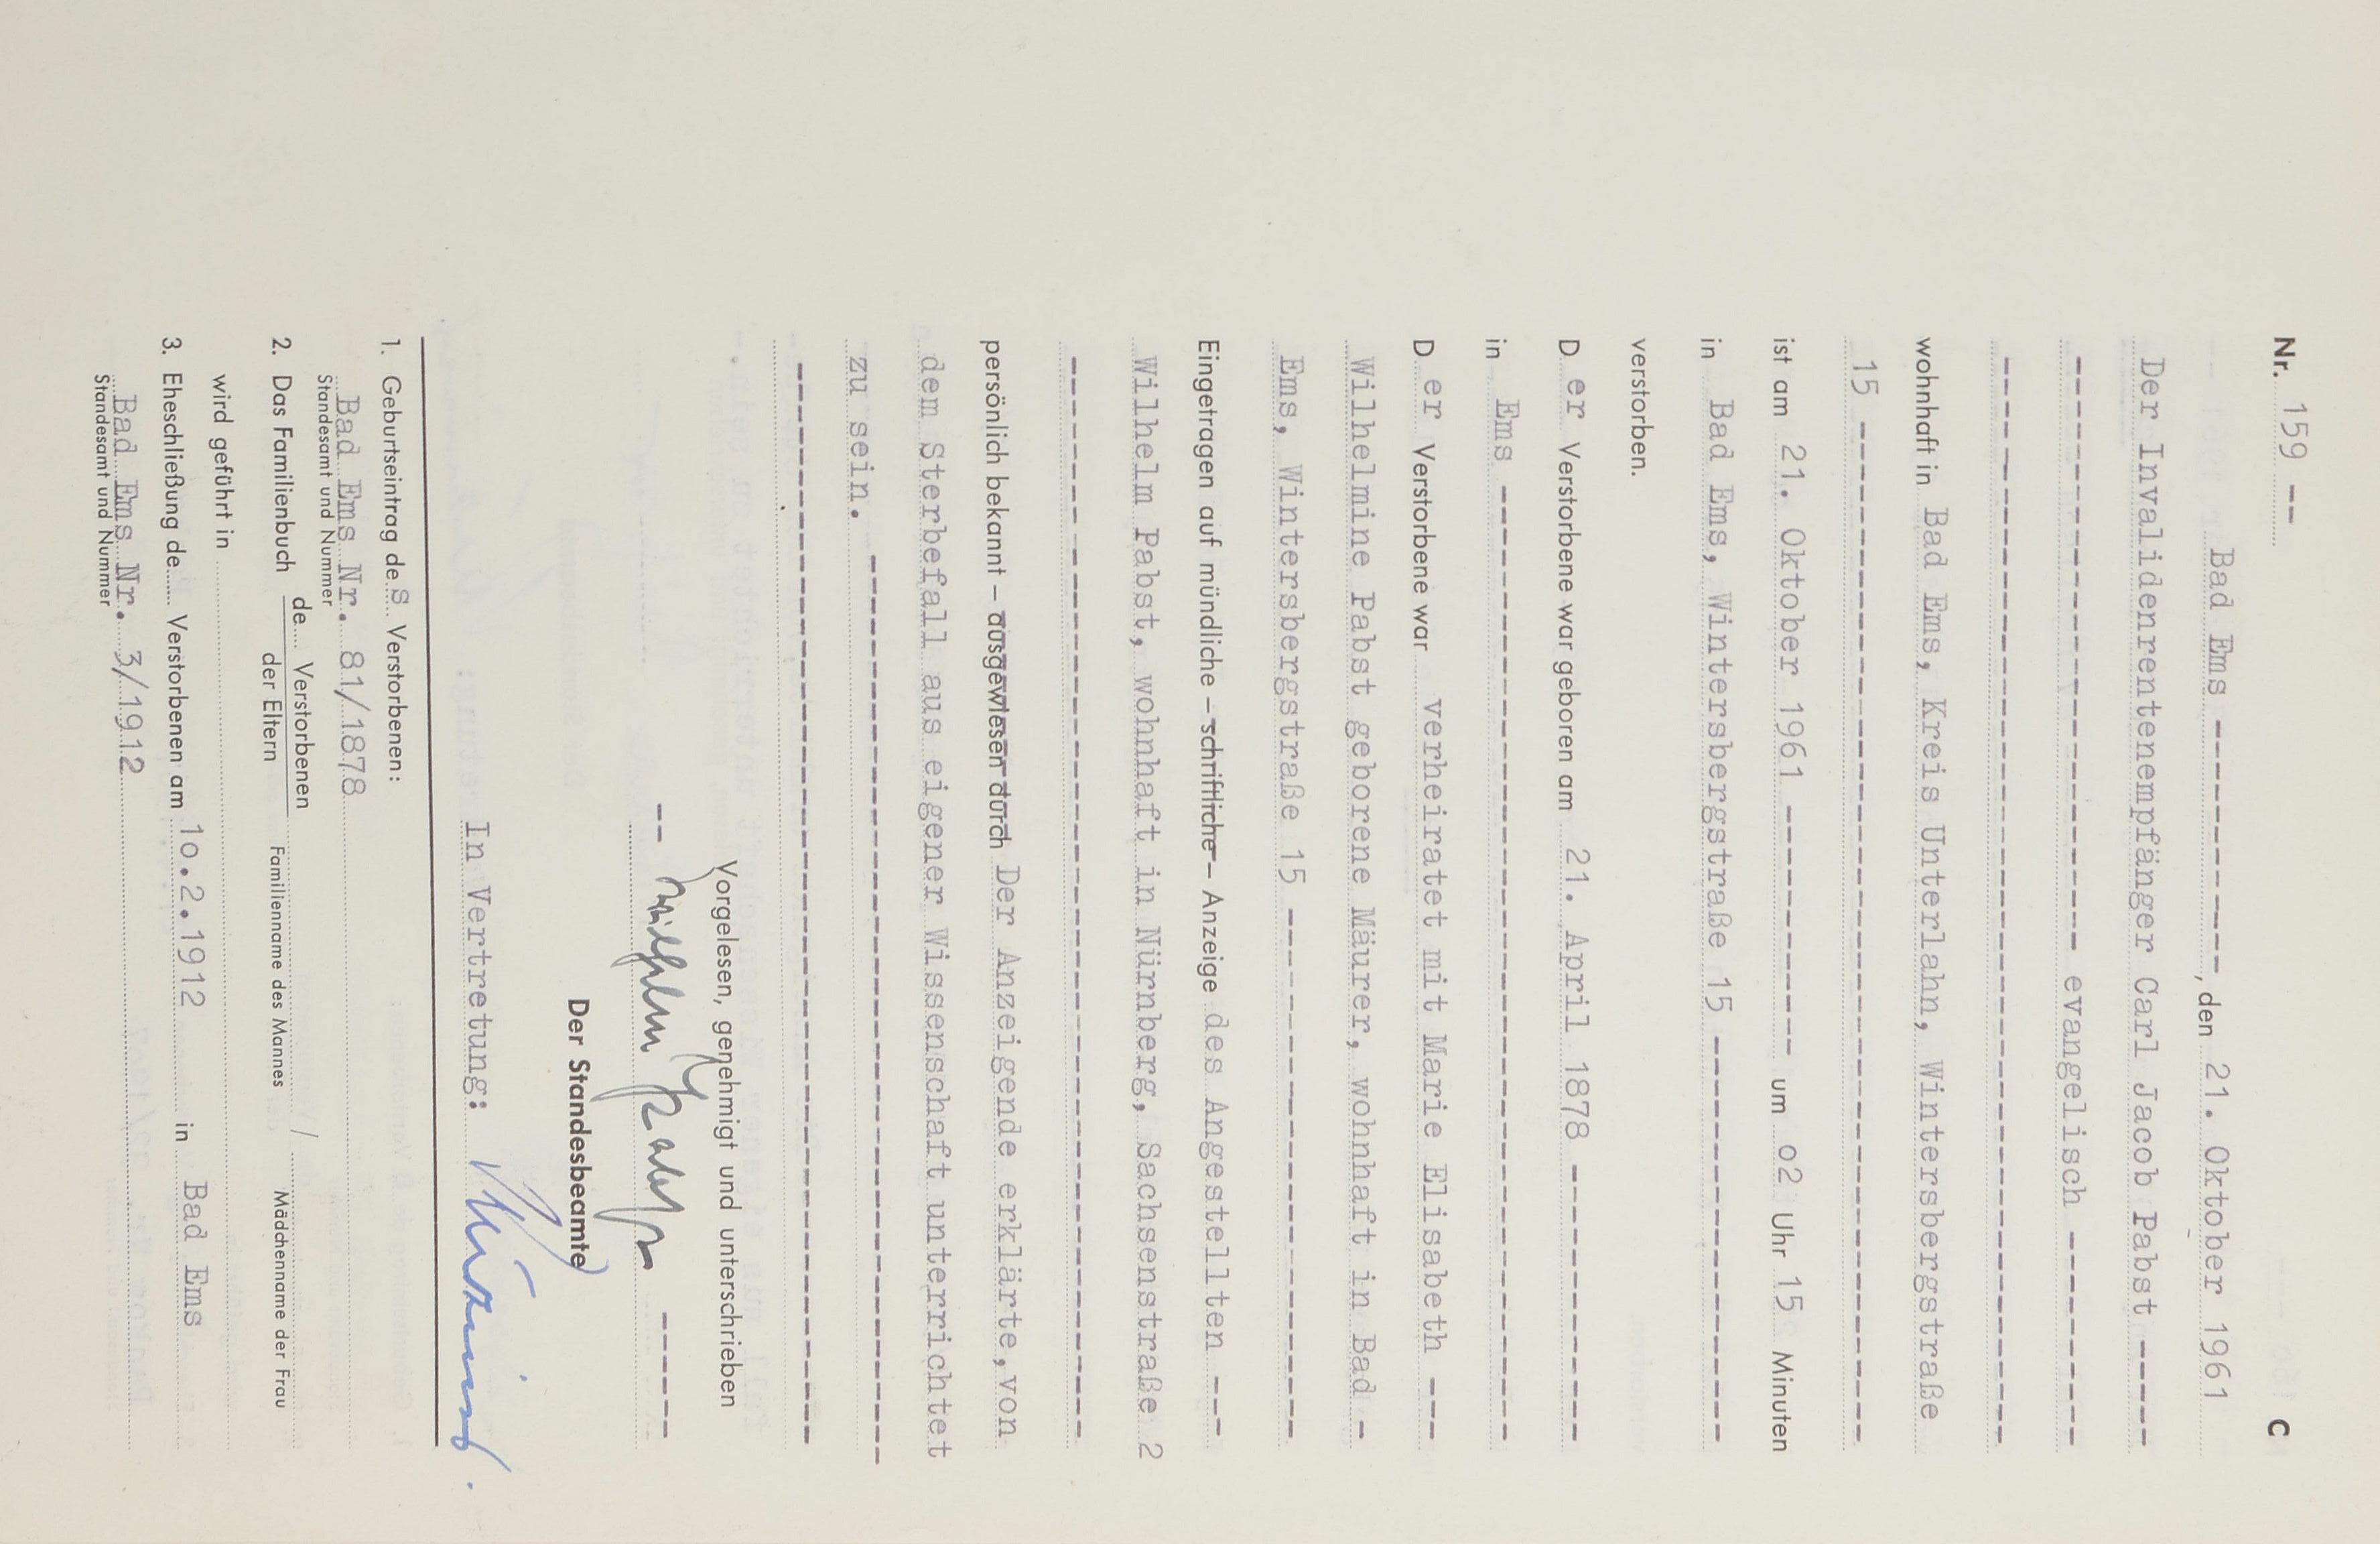 Nr. 159 -- C
Bad Ems ------------, den 21. Oktober 1961
Der Invalidenrentenempfänger Carl Jacob Pabst -----
---------------------------- evangelisch ----------
---------------------------------------------------
wohnhaft in Bad Ems, Kreis Unterlahn, Wintersbergstraße
15 ------------------------------------------------
ist am 21. Oktober 1961 ------------ um o2 Uhr 15 Minuten
in Bad Ems, Wintersbergstraße 15 -------------------
verstorben.
D er Verstorbene war geboren am 21. April 1878 -------------
in Ems ---------------------------------------------
D er Verstorbene war verheiratet mit Marie Elisabeth ---
Wilhelmine Pabst geborene Mäurer, wohnhaft in Bad -
Ems, Wintersbergstraße 15 -------------------------
Eingetragen auf mündliche – schriftliche – Anzeige des Angestellten ---
Wilhelm Pabst, wohnhaft in Nürnberg, Sachsenstraße 2
---------------------------------------------------
persönlich bekannt – ausgewiesen durch Der Anzeigende erklärte, von
dem Sterbefall aus eigener Wissenschaft unterrichtet
zu sein. -------------------------------------------
---------------------------------------------------
Vorgelesen, genehmigt und unterschrieben
-- Wilhelm Pabst ------
Der Standesbeamte
In Vertretung:
1. Geburtseintrag des Verstorbenen:
Bad Ems Nr. 81/1878
Standesamt und Nummer
2. Das Familienbuch de.... Verstorbenen /
der Eltern Familienname des Mannes Mädchenname der Frau
wird geführt in
3. Eheschließung de..... Verstorbenen am 1o.2.1912 in Bad Ems
Bad Ems Nr. 3/1912
Standesamt und Nummer